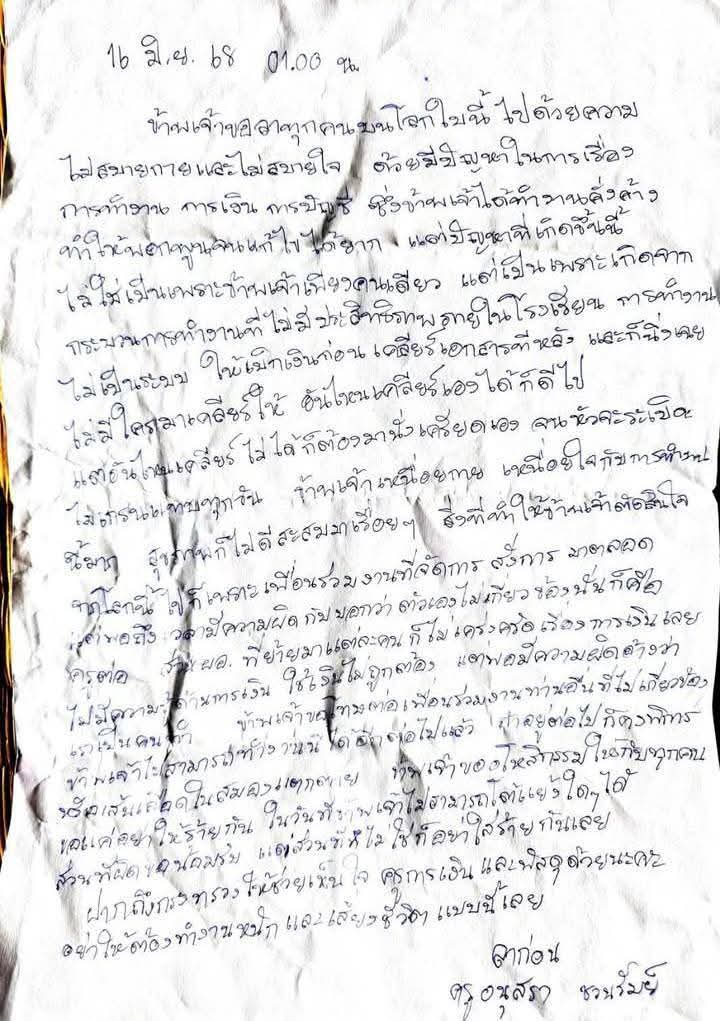 16 มิ.ย. 68 01.00 น.
ข้าพเจ้าขอลาทุกคนบนโลกใบนี้ ไปด้วยความ
ไม่สบายกายและไม่สบายใจ ด้วยมีปัญหาในการเรื่อง
การทำงาน การเงิน การบัญชี ซึ่งข้าพเจ้าได้ทำงานคั่งค้าง
ทำให้พอกพูนจนแก้ไขได้ยาก แต่ปัญหาที่เกิดขึ้นนี้
ไม่ใช่เป็นเพราะข้าพเจ้าเพียงคนเดียว แต่เป็นเพราะเกิดจาก
กระบวนการทำงานที่ไม่มีประสิทธิภาพภายในโรงเรียน การทำงาน
ไม่เป็นระบบ ให้เบิกเงินก่อน เคลียร์เอกสารทีหลัง และก็นิ่งเฉย
ไม่มีใครมาเคลียร์ให้ อันไหนเคลียร์เองได้ก็ดีไป
แต่อันไหนเคลียร์ไม่ได้ก็ต้องมานั่งเครียดเอง จนหัวจะระเบิด
ไมเกรนแทบทุกวัน ข้าพเจ้าเหนื่อยกาย เหนื่อยใจกับการทำงาน
นี้มาก สุขภาพก็ไม่ดีสะสมมาเรื่อยๆ สิ่งที่ทำให้ข้าพเจ้าตัดสินใจ
จากโลกนี้ไปก็เพราะเพื่อนร่วมงานที่จัดการ สั่งการ มาตลอด
แต่พอถึงเวลามีความผิดกับบอกว่า ตัวเองไม่เกี่ยวข้องนั่นก็คือ
ครูต่อ ส่วน ผอ. ที่ย้ายมาแต่ละคนก็ไม่เคร่งครัดเรื่องการเงินเลย
ไม่มีความรู้ด้านการเงิน ใช้เงินไม่ถูกต้อง แต่พอมีความผิดอ้างว่า
เราเป็นคนทำ ข้าพเจ้าขอโทษต่อเพื่อนร่วมงานท่านอื่นที่ไม่เกี่ยวข้อง
ข้าพเจ้าไม่สามารถทำงานนี้ได้อีกต่อไปแล้ว ถ้าอยู่ต่อไปก็คงพิการ
หรือเส้นเลือดในสมองแตกตาย ข้าพเจ้าขออโหสิกรรมให้กับทุกคน
ขอแค่อย่าให้ร้ายกัน ในวันที่ข้าพเจ้าไม่สามารถโต้แย้งใดๆ ได้
ส่วนที่ผิดขอน้อมรับ แต่ส่วนที่ไม่ใช่ก็อย่าใส่ร้ายกันเลย
ฝากถึงกระทรวงให้ช่วยเห็นใจ ครูการเงิน และพัสดุด้วยนะคะ
อย่าให้ต้องทำงานหนักและเสี่ยงชีวิตแบบนี้เลย
ลาก่อน
ครู อนุสรา